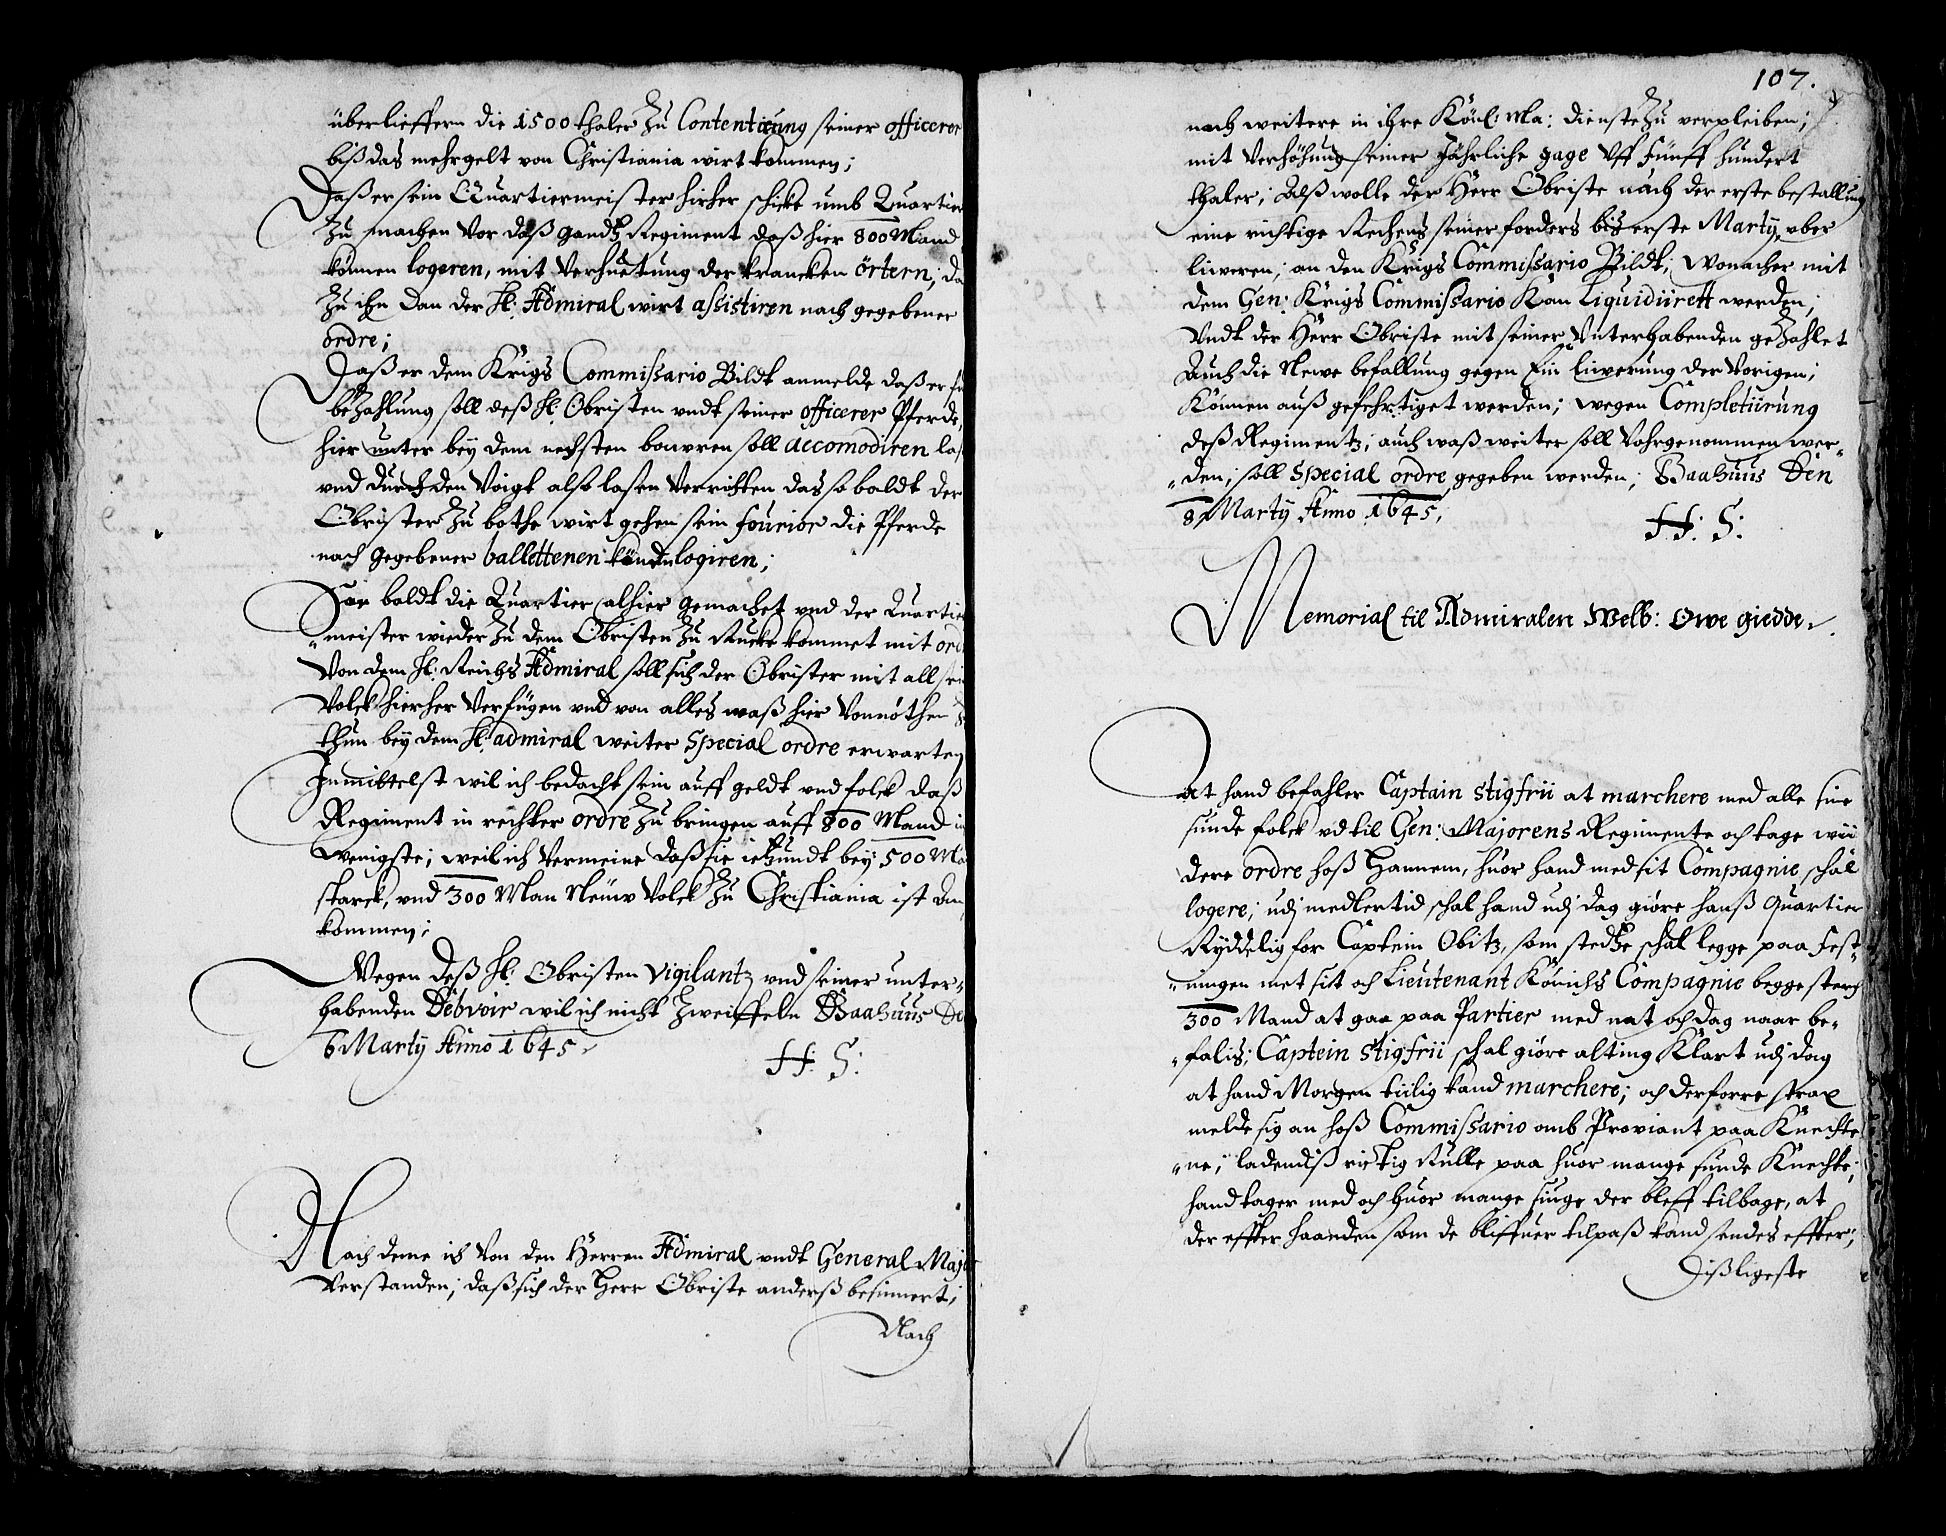 überlieffern die 1500 thaler Zu Contentierung seiner officerer
biß das mehr gelt von Christiania wirt kommen;
Daß er sein Quartiermeister hirher schicke umb Quartier
Zu machen Vor daß gandtz Regiment daß hier 800 Mand
können logeren, mit Verhuetung der krancken örtern, da
Zu ihn dan der H: Admiral wirt assistiren nach gegebener
ordre;
Daß er dem Krigs Commissario Bildt anmelde daß er für
beZahlung soll deß H: Obristen undt seiner officerer Pferde,
hier unter bey dem nechsten bouwren soll accomodiren las
und durch den Voigt also lasen Verrichten das so baldt der
Obrister Zu bothe wirt gehen sein fourior die Pferde
nach gegebener ballettenen könde logiren;
Soe baldt die Quartier alhier gemachet und der Quartier
meister wieder Zu dem Obristen Zu Rucke kommet mit ord
Von dem H: Reichs Admiral soll sich der Obrister mit all sein
Volck hierher Verfügen und von alles waß hier Vonnöthen Z
thun bey dem H: admiral weiter special ordre erwarten
Inmittelst wil ich bedacht sein auff geldt und folck daß
Regiment in rechter ordre Zu bringen auff 800 Mand i
Wenigste; weil ich Vermeine daß sie ietzundt bey 500 Ma
starck, und 300 Man Neuw Volck Zu Christiania ist an
kommen;
Wegen deß H: Obristen vigilantz und seiner unter-
habenden Debvoir wil ich nicht Zweiffeln Baahuus De
6 Marty Anno 1645
H: S:
Nach deme ich Von den Herren Admiral undt General Major
Verstanden; daß sich der Herr Obriste anderß besinnert;
Nach
107.
noch weitere in ihre Könl: Ma: dienste Zu verpleiben;
mit Verhöhung seiner Jährliche gage Uff Fünff hundert
thaler; Alß wolle der Herr Obriste nach der erste bestallung
eine richtige Rechens seiner forders bis erste Marty, uber
liweren; an den Krigs Commissario Bildt; wonacher mit
dem Gen: Krigs Commissario Kan Liquidiirett werden;
Undt der Herr Obriste mit seiner Unterhabenden geZahlet
Auch die Newe befallung gegen Ein liwerung der Vorigen;
Können auß gefehrtiget werden; wegen Completiirung
deß Regimentz, auch waß weiter soll Vohrgenommen wer-
den; soll special ordre gegeben werden; Baahuus Den
8 Marty Anno 1645,
H: S:
Memorial til Admiralen Welb: Owe giedde
At hand befahler Captain Stigfrii at marchere med alle sine
sunde folck ud til Gen: Majorens Regimente och tage wii
dere ordre hoß Hannem, huor hand med sit Compagnie schal
logere; udj medlertid schal hand udj dag giöre hanß Quartier
Ryddelig for Captein Obitz, som stedtze schal legge paa Fest-
ningen met sit och Lieutenant Könichs Compagnie begge sterch
300 Mand at gaa paa Partier med nat och dag naar be-
falis; Captein Stigfrii schal giöre alting Klart udj dag
at hand Morgen tiilig kand marchere; och derforre strax
melde sig an hoß Commissario omb Proviant paa Knechte
ne; ladendiß richtig Rulle paa huor mange sunde Knechte;
hand tager med och huor mange siuge der bleff tilbage, at
der effter haanden som de bliffuer tilpaß kand sendes effter;
Dißligeste